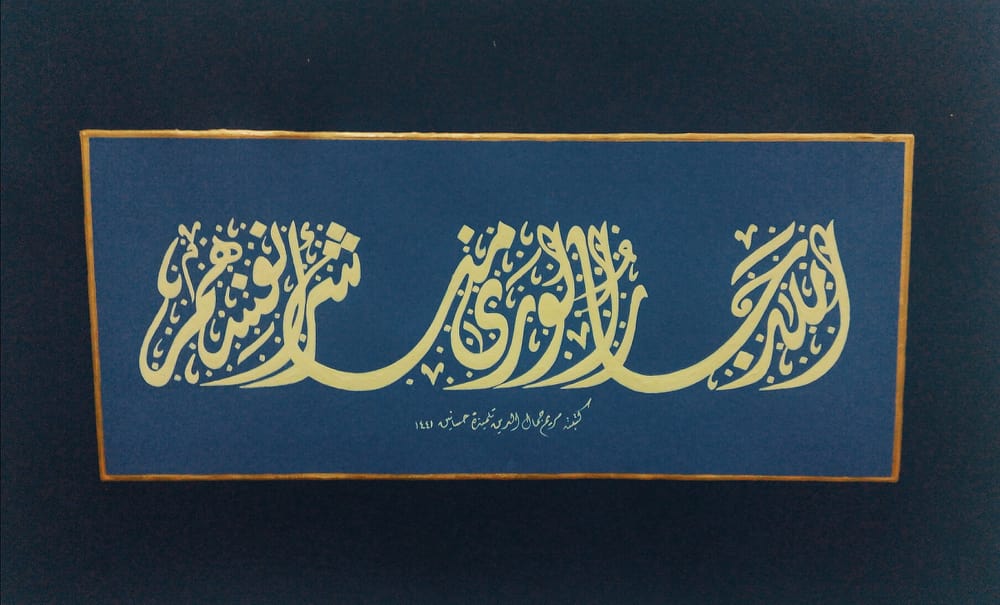 الله جَارُ الورى من شر أنفسِهم
كتبته مريم جمال الدين تلميذة حسانين ١٤٤١